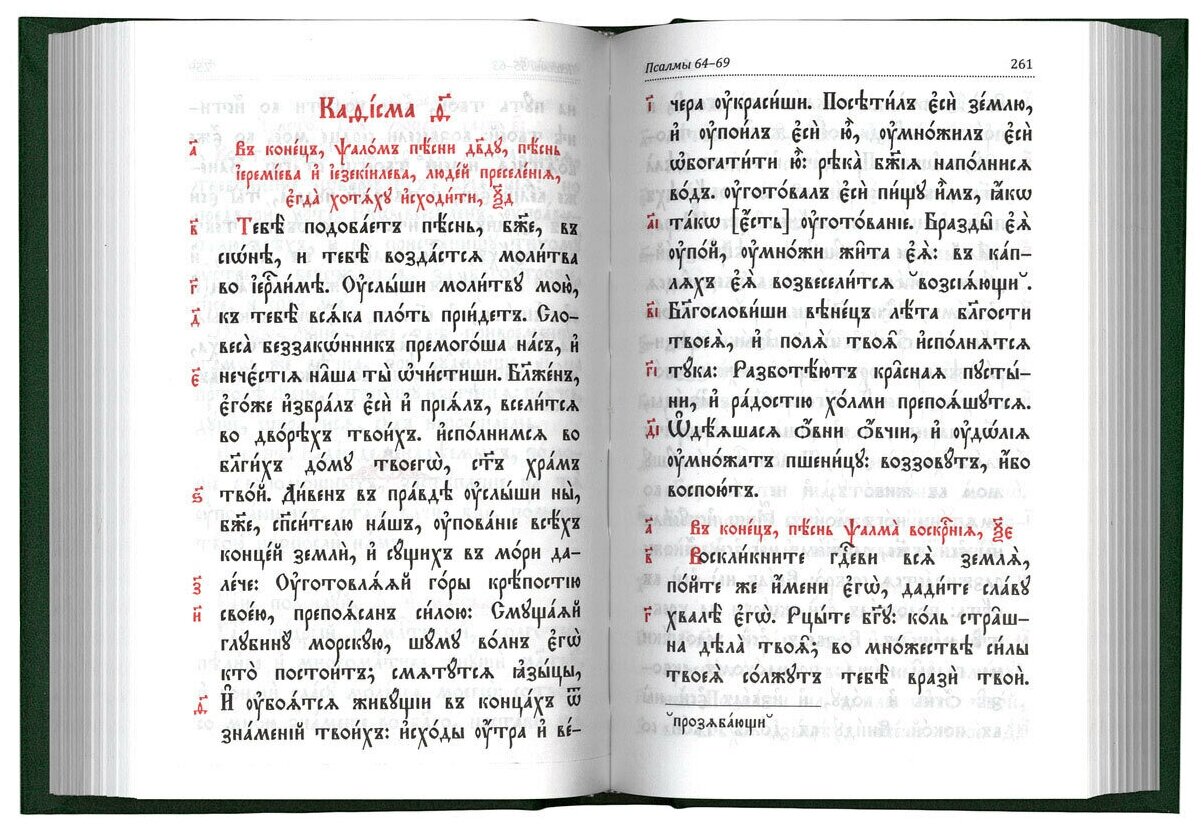 Каѳі́сма д҃
а҃ Въ коне́цъ, ѱало́мъ пѣ́сни дв҃ду, пѣ́снь
і҆еремі́ева и҆ і҆езекі́илева, люде́й преселе́нїѧ,
є҆гда̀ хотѧ́ху и҆сходи́ти, ѯ҃д
в҃ Тебѣ̀ подоба́етъ пѣ́снь, бж҃е, въ
сїѡ́нѣ, и҆ тебѣ̀ возда́стсѧ моли́тва
г҃ во і҆ерⷭ҇ли́мѣ. Оу҆слы́ши моли́тву мою̀,
д҃ къ тебѣ̀ всѧ́ка пло́ть прїи́детъ. Сло-
веса̀ беззако́нникъ премого́ша на́съ, и҆
є҃ нече́стїѧ на̑ша ты̀ ѡ҆чи́стиши. Бл҃же́нъ,
є҆го́же и҆збра́лъ є҆сѝ и҆ прїѧ́лъ, всели́тсѧ
во дво́рѣхъ твои́хъ. и҆спо́лнимсѧ во
бл҃ги́хъ до́му твоегѡ̀, ст҃ъ хра́мъ
ѕ҃ тво́й. Ди́венъ въ пра́вдѣ оу҆слы́ши ны̀,
бж҃е, сп҃си́телю на́шъ, оу҆пова́нїе всѣ́хъ
конце́й землѝ, и҆ су́щихъ въ мо́ри да-
з҃ ле́че: Оу҆готовлѧ́ѧй го́ры крѣ́постїю
и҃ свое́ю, препоѧ́санъ си́лою: Смуща́ѧй
глубину̀ морску́ю, шу́му во́лнъ є҆гѡ̀
кто̀ постои́тъ; смѧту́тсѧ ꙗ҆зы́цы,
ѳ҃ И҆ оу҆боѧ́тсѧ живу́щїи въ конца́хъ ѿ
зна́менїй твои́хъ: и҆схо́ды оу҆́тра и҆ ве́-
Псалмы 64–69 261
і҃ чера оу҆краси́ши. Посѣти́лъ є҆сѝ зе́млю,
и҆ оу҆пои́лъ є҆сѝ ю҆̀, оу҆мно́жилъ є҆сѝ
ѡ҆богати́ти ю҆̀: рѣка̀ бж҃їѧ напо́лнисѧ
во́дъ. оу҆гото́валъ є҆сѝ пи́щу и҆̀мъ, ꙗ҆́кѡ
а҃і та́кѡ [є҆́сть] оу҆гото́ванїе. Бразды̑ є҆ѧ̀
оу҆по́й, оу҆мно́жи жи̑та є҆ѧ̀: въ ка́п-
лѧхъ є҆ѧ̀ возвесели́тсѧ ̋возсїѧ́ющи ̋.
в҃і Бл҃гослови́ши вѣне́цъ лѣ́та бл҃гости
твоеѧ̀, и҆ полѧ̀ твоѧ̑ и҆спо́лнѧтсѧ
г҃і ту́ка: Разботѣ́ютъ кра̑снаѧ пусты́-
ни, и҆ ра́достїю хо́лми препоѧ́шутсѧ.
д҃і Ѡ҆дѣ́ѧшасѧ ѻ҆вни̑ ѻ҆́вчїи, и҆ оу҆дѡ́лїѧ
оу҆мно́жатъ пшени́цу: воззову́тъ, и҆́бо
воспою́тъ.
а҃ Въ коне́цъ, пѣ́снь ѱалма̀ воскрⷭ҇нїѧ, ѯ҃е
в҃ Воскли́кните гдⷭ҇еви всѧ̀ землѧ̀,
по́йте же и҆́мени є҆гѡ̀, дади́те сла́ву
г҃ хвалѣ̀ є҆гѡ̀. Рцы́те бг҃у: ко́ль страш-
на̀ дѣла̀ твоѧ̑; во мно́жествѣ си́лы
твоеѧ̀ со́лжутъ тебѣ̀ вразѝ твои̑.
̋прозѧба́ющи ̋